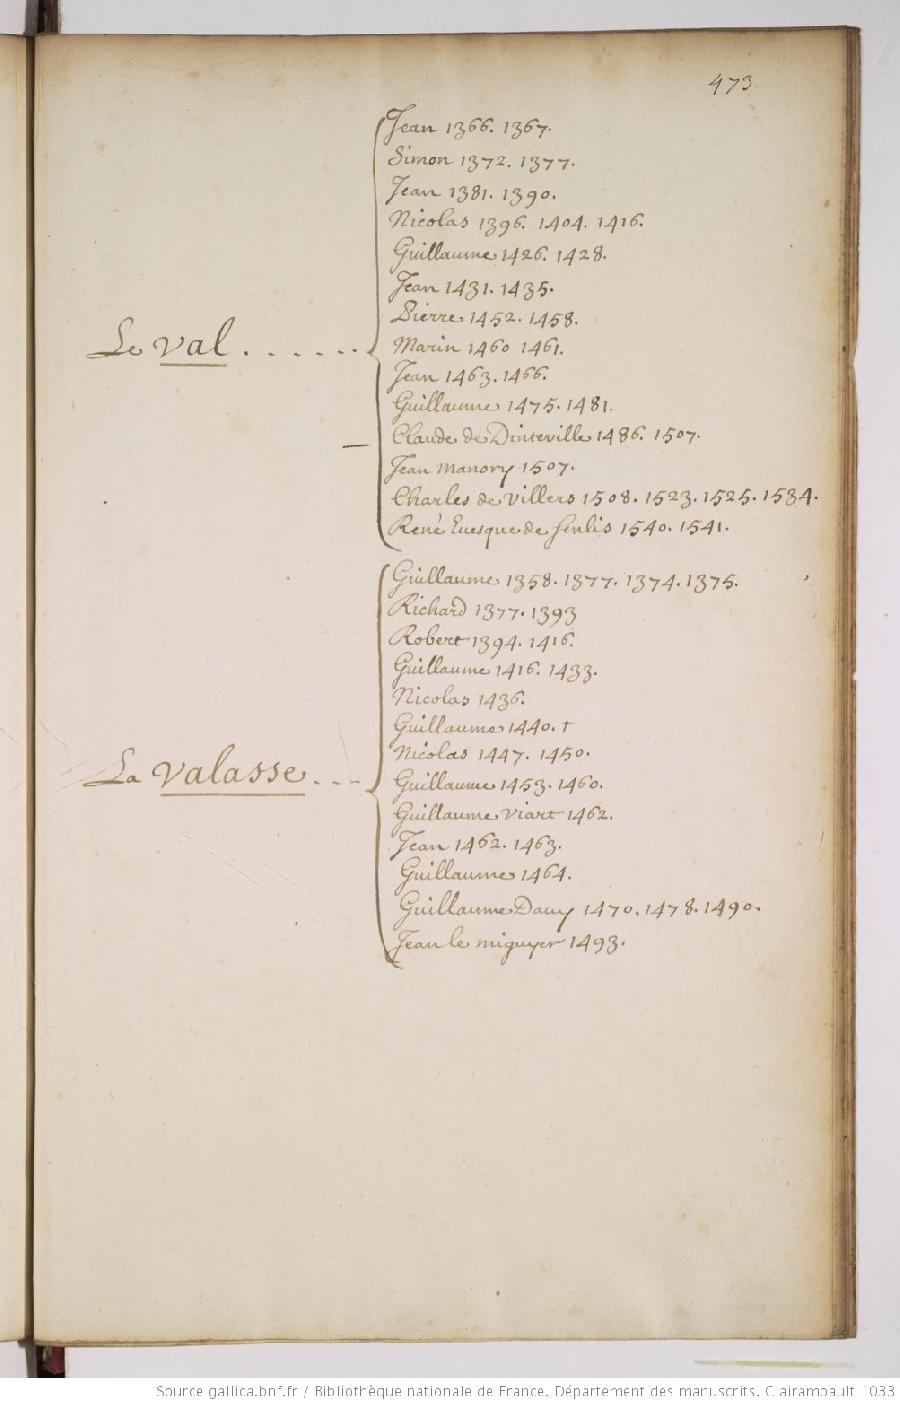 473.
Jean 1366. 1367.
Simon 1372. 1377.
Jean 1381. 1390.
Nicolas 1396. 1404. 1416.
Guillaume 1426. 1428.
Jean 1431. 1435.
Pierre 1452. 1458.
Le val . . . . . .
Marin 1460 1461.
Jean 1463. 1466.
Guillaume 1475. 1481.
Claude de Dinteville 1486. 1507.
Jean Manory 1507.
Charles de Villers 1508. 1523. 1525. 1534.
René Evesque de Senlis 1540. 1541.
Guillaume 1358. 1377. 1374. 1375.
Richard 1377. 1393
Robert 1394. 1416.
Guillaume 1416. 1433.
Nicolas 1436.
Guillaume 1440. †
Nicolas 1447. 1450.
La valasse . . .
Guillaume 1453. 1460.
Guillaume viart 1462.
Jean 1462. 1463.
Guillaume 1464.
Guillaume Davy 1470. 1478. 1490.
Jean le miguyer 1493.
Source gallica.bnf.fr / Bibliothèque nationale de France. Département des manuscrits. Clairambault 1033